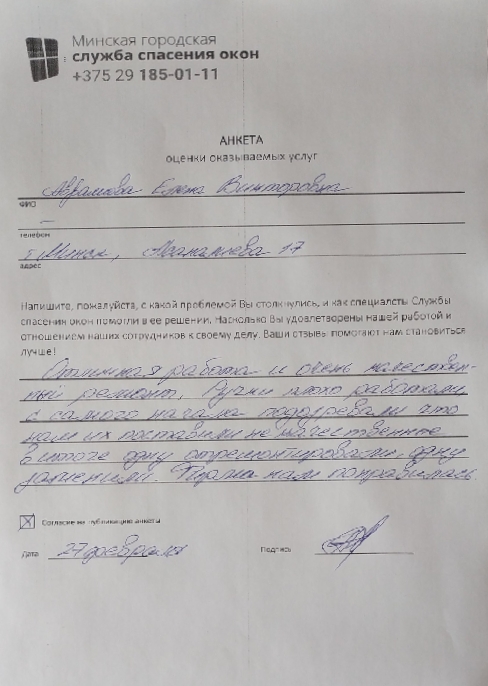 Минская городская
служба спасения окон
+375 29 185-01-11
АНКЕТА
оценки оказываемых услуг
Аврамова Елена Викторовна
ФИО
—
телефон
г. Минск, 17
адрес
Напишите, пожалуйста, с какой проблемой Вы столкнулись, и как специалсты Службы
спасения окон помогли в ее решении. Насколько Вы удовлетворены нашей работой и
отношением наших сотрудников к своему делу. Ваши отзывы помогают нам становиться
лучше!
Отличная работа и очень качествен-
ный ремонт. Ручки плохо работали
с самого начала подозревали что
нам их поставили не качественные
в итоге одну отремонтировали, одну
заменили. Фирма нам понравилась.
Согласие на публикацию анкеты
Дата 27 февраля Подпись